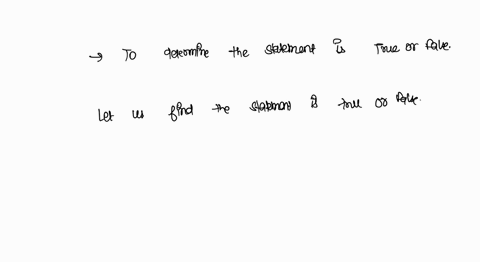 → To determine the statement is True or false.
Let us find the statement is true or false.